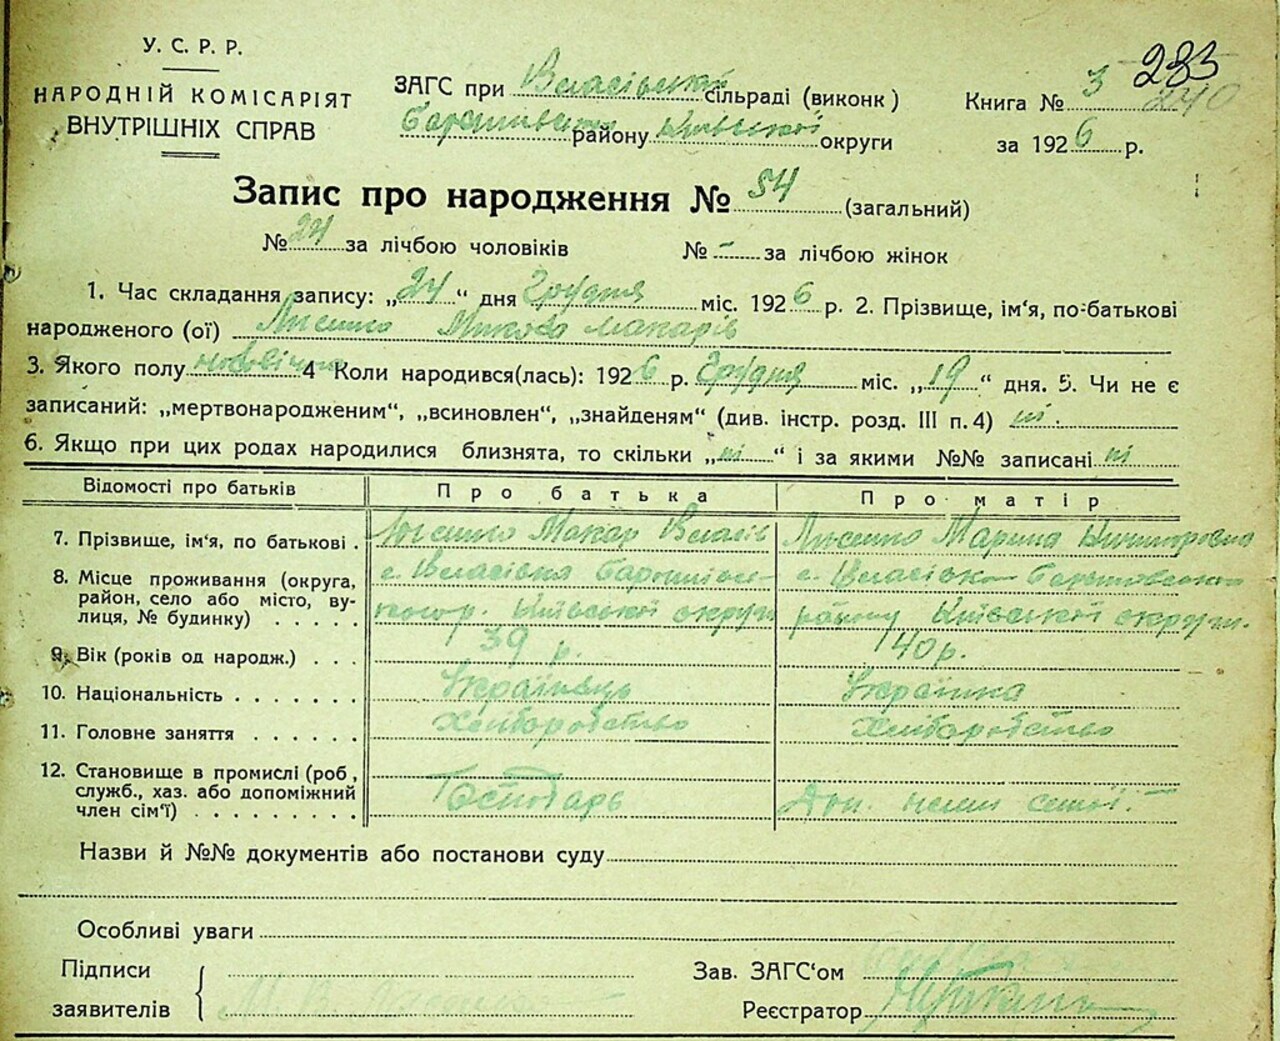 У. С. Р. Р.
НАРОДНІЙ КОМІСАРІЯТ
ВНУТРІШНІХ СПРАВ
ЗАГС при Власівській сільраді (виконк)
району Київської округи
Книга № 3 235 240
за 1926 р.
Запис про народження № 54 (загальний)
№ 24 за лічбою чоловіків № - за лічбою жінок
1. Час складання запису: „24“ дня Грудня міс. 1926 р. 2. Прізвище, ім'я, по-батькові
народженого (ої) Лисенко Микола Макарів
3. Якого полу чоловічого 4 Коли народився(лась): 1926 р. Грудня міс. „19“ дня. 5. Чи не є
записаний: „мертвонародженим“, „всиновлен“, „знайденям“ (див. інстр. розд. III п. 4) ні.
6. Якщо при цих родах народилися близнята, то скільки „ні“ і за якими №№ записані ні
Відомості про батьків Про батька Про матір
7. Прізвище, ім'я, по батькові . Лисенко Макар Власів Лисенко Марина
8. Місце проживання (округа, район, село або місто, вулиця, № будинку) . . . . . с. Власівка Київської округи с. Власівка району Київської округи.
9. Вік (років од народж.) . . . 39 р. 40 р.
10. Національність . . . . . . . Українець Українка
11. Головне заняття . . . . . . Хліборобство Хліборобство
12. Становище в промислі (роб, служб., хаз. або допоміжний член сім'ї) . . . . . . . . . Господарь Доп. член семьї.
Назви й №№ документів або постанови суду
Особливі уваги
Підписи
заявителів М. В. Лисенко
Зав. ЗАГС'ом
Реєстратор